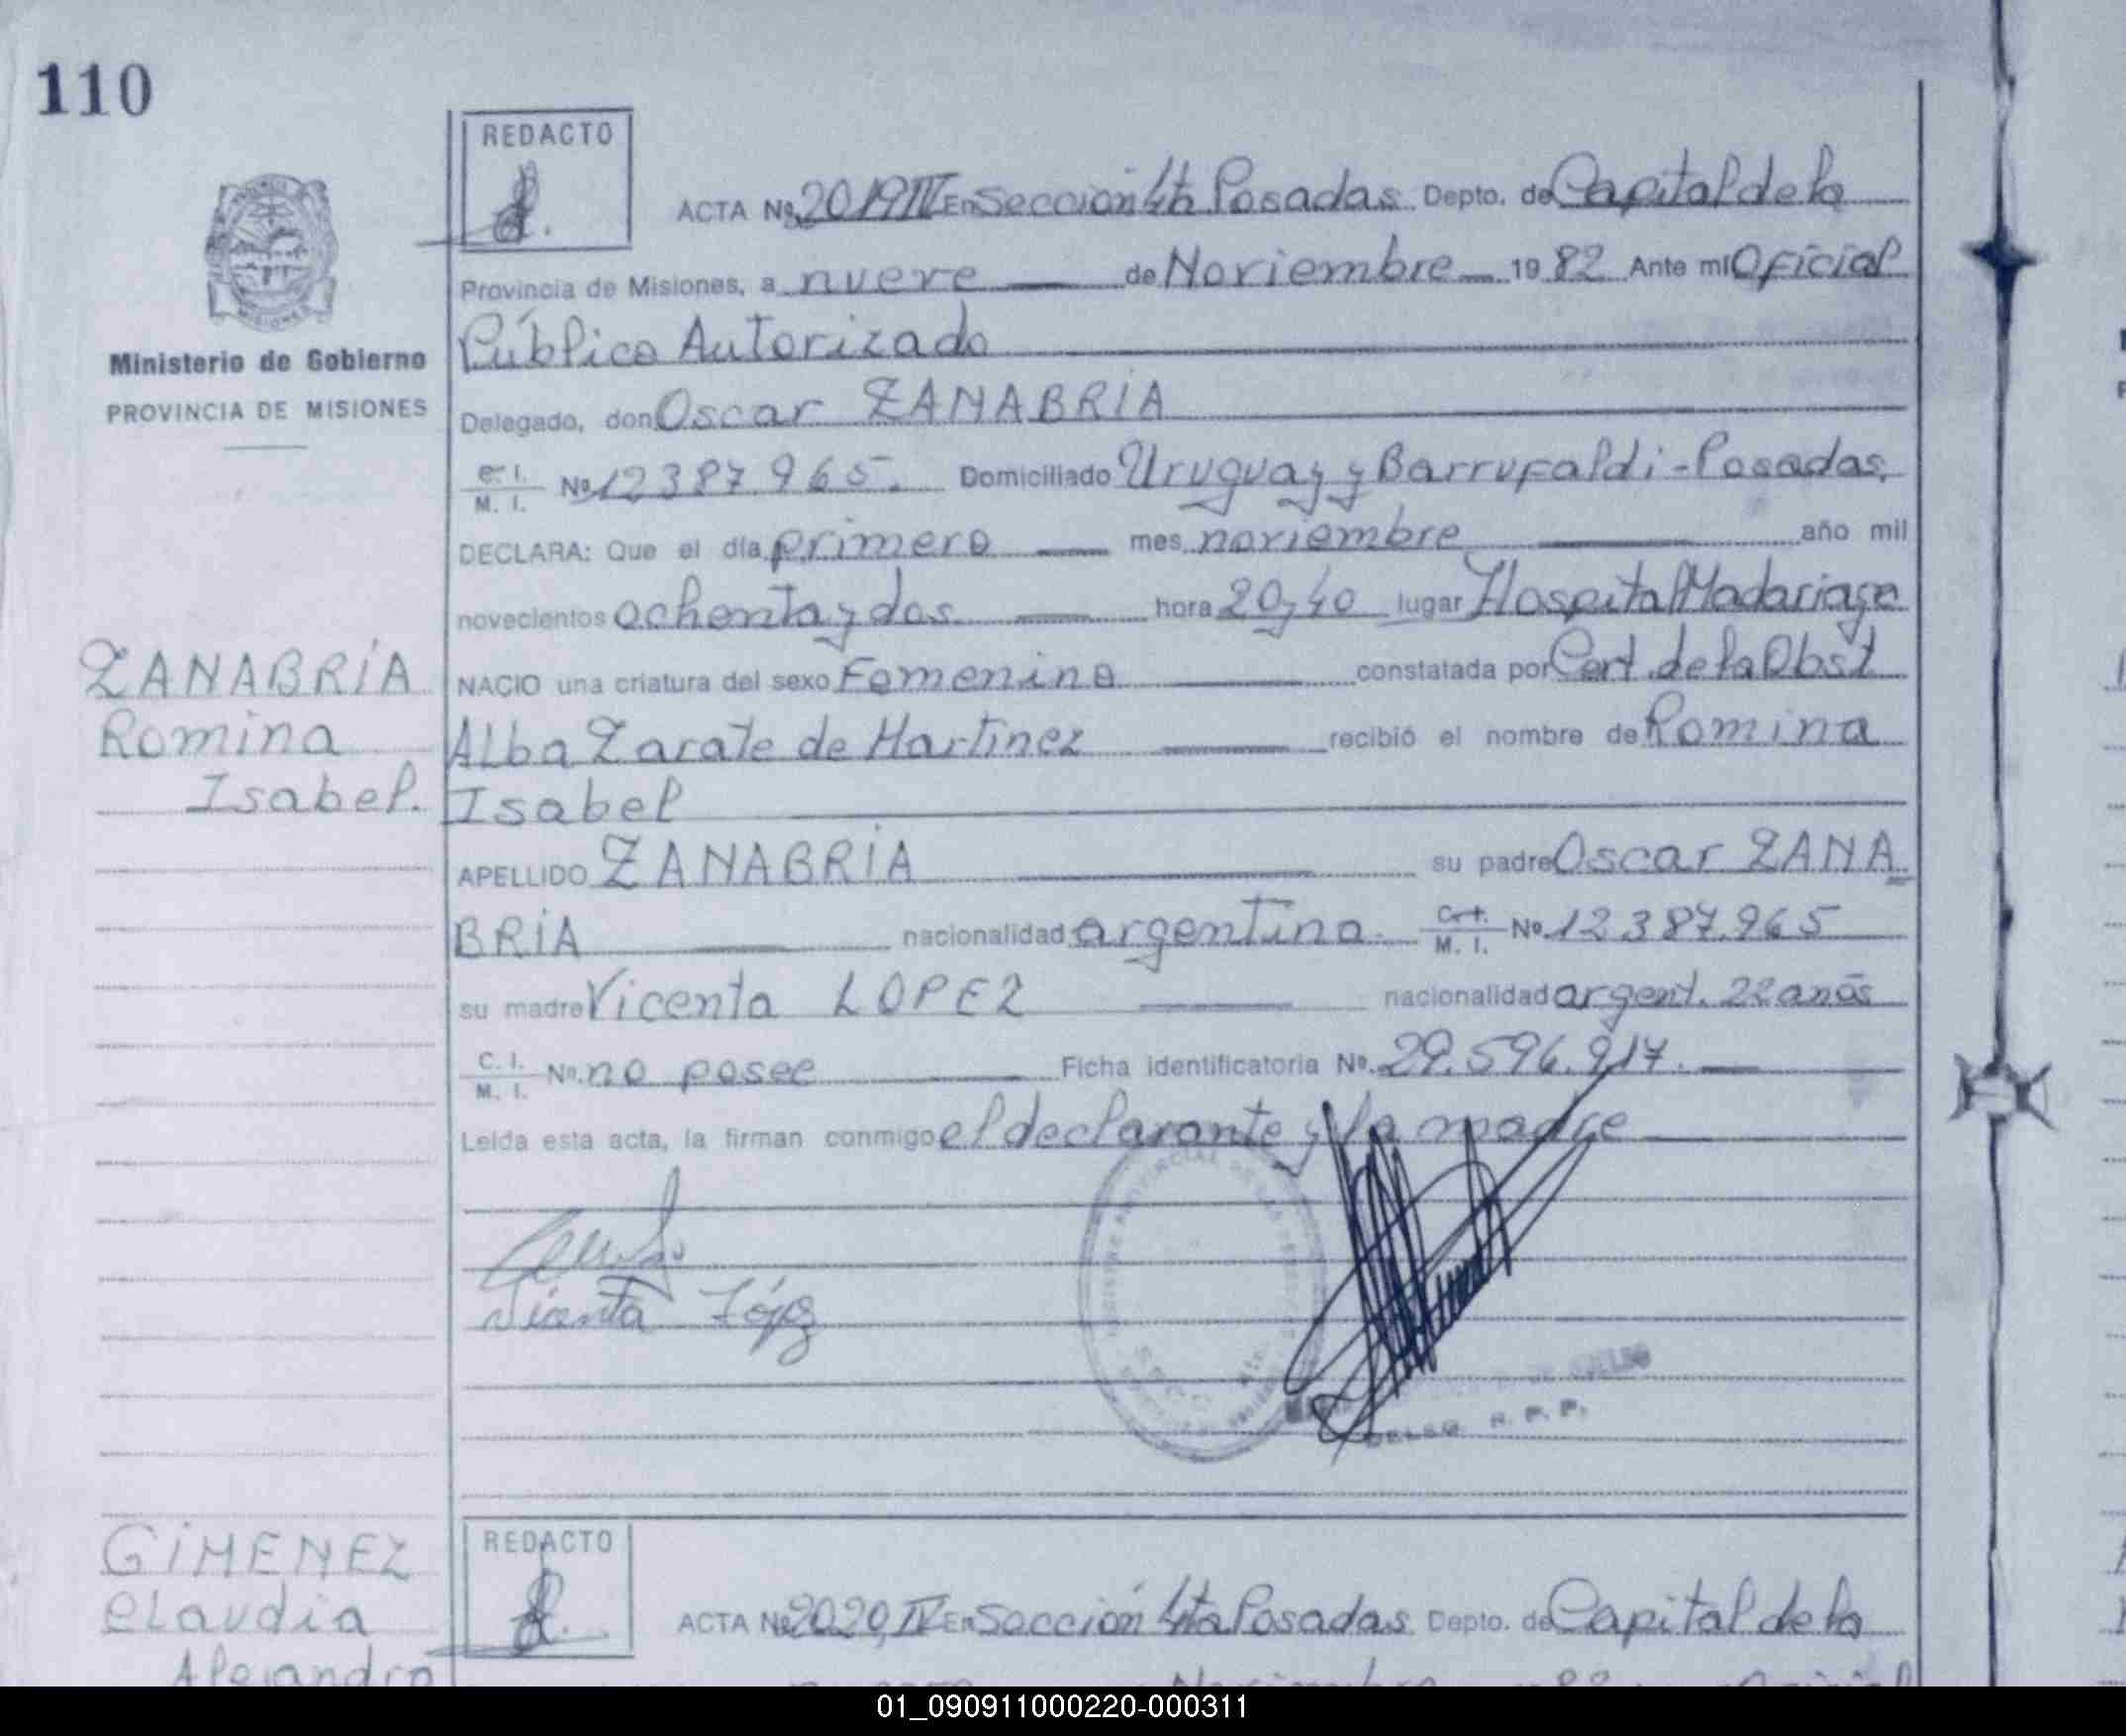 110
REDACTO
ACTA Nº 2019 IV En Sección 4ta Posadas Depto. de Capital de la
Provincia de Misiones, a nueve de Noviembre 1982 Ante mí Oficial
Público Autorizado
Ministerio de Gobierno
PROVINCIA DE MISIONES
Delegado, don Oscar ZANABRIA
C. I. M. I. Nº 12387.965. Domiciliado Uruguay y Barrufaldi - Posadas,
DECLARA: Que el día primero mes noviembre año mil
novecientos ochenta y dos hora 20,40 lugar Hospital Madariaga
ZANABRÍA
Romina
Isabel.
NACIO una criatura del sexo Femenino constatada por Cert. de la Obst
Alba Zarate de Martinez recibió el nombre de Romina
Isabel
APELLIDO ZANABRIA su padre Oscar ZANA
BRIA nacionalidad argentina C. I. M. I. Nº 12387.965
su madre Vicenta LOPEZ nacionalidad argent. 22 años
C. I. M. I. Nº no posee Ficha identificatoria Nº 29.596.917.
Leída esta acta, la firman conmigo el declarante y la madre
Vicenta López
R. P. P.
GIMENEZ
Claudia
Alejandra
REDACTO
ACTA Nº 2020, IV En Sección 4ta Posadas Depto. de Capital de la
01_090911000220-000311